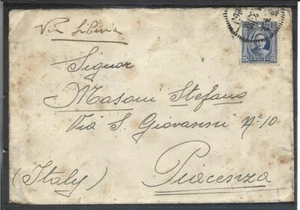 Via Siberia
Signor
Masoni Stefano
Via S. Giovanni N° 10
(Italy)
Piacenza